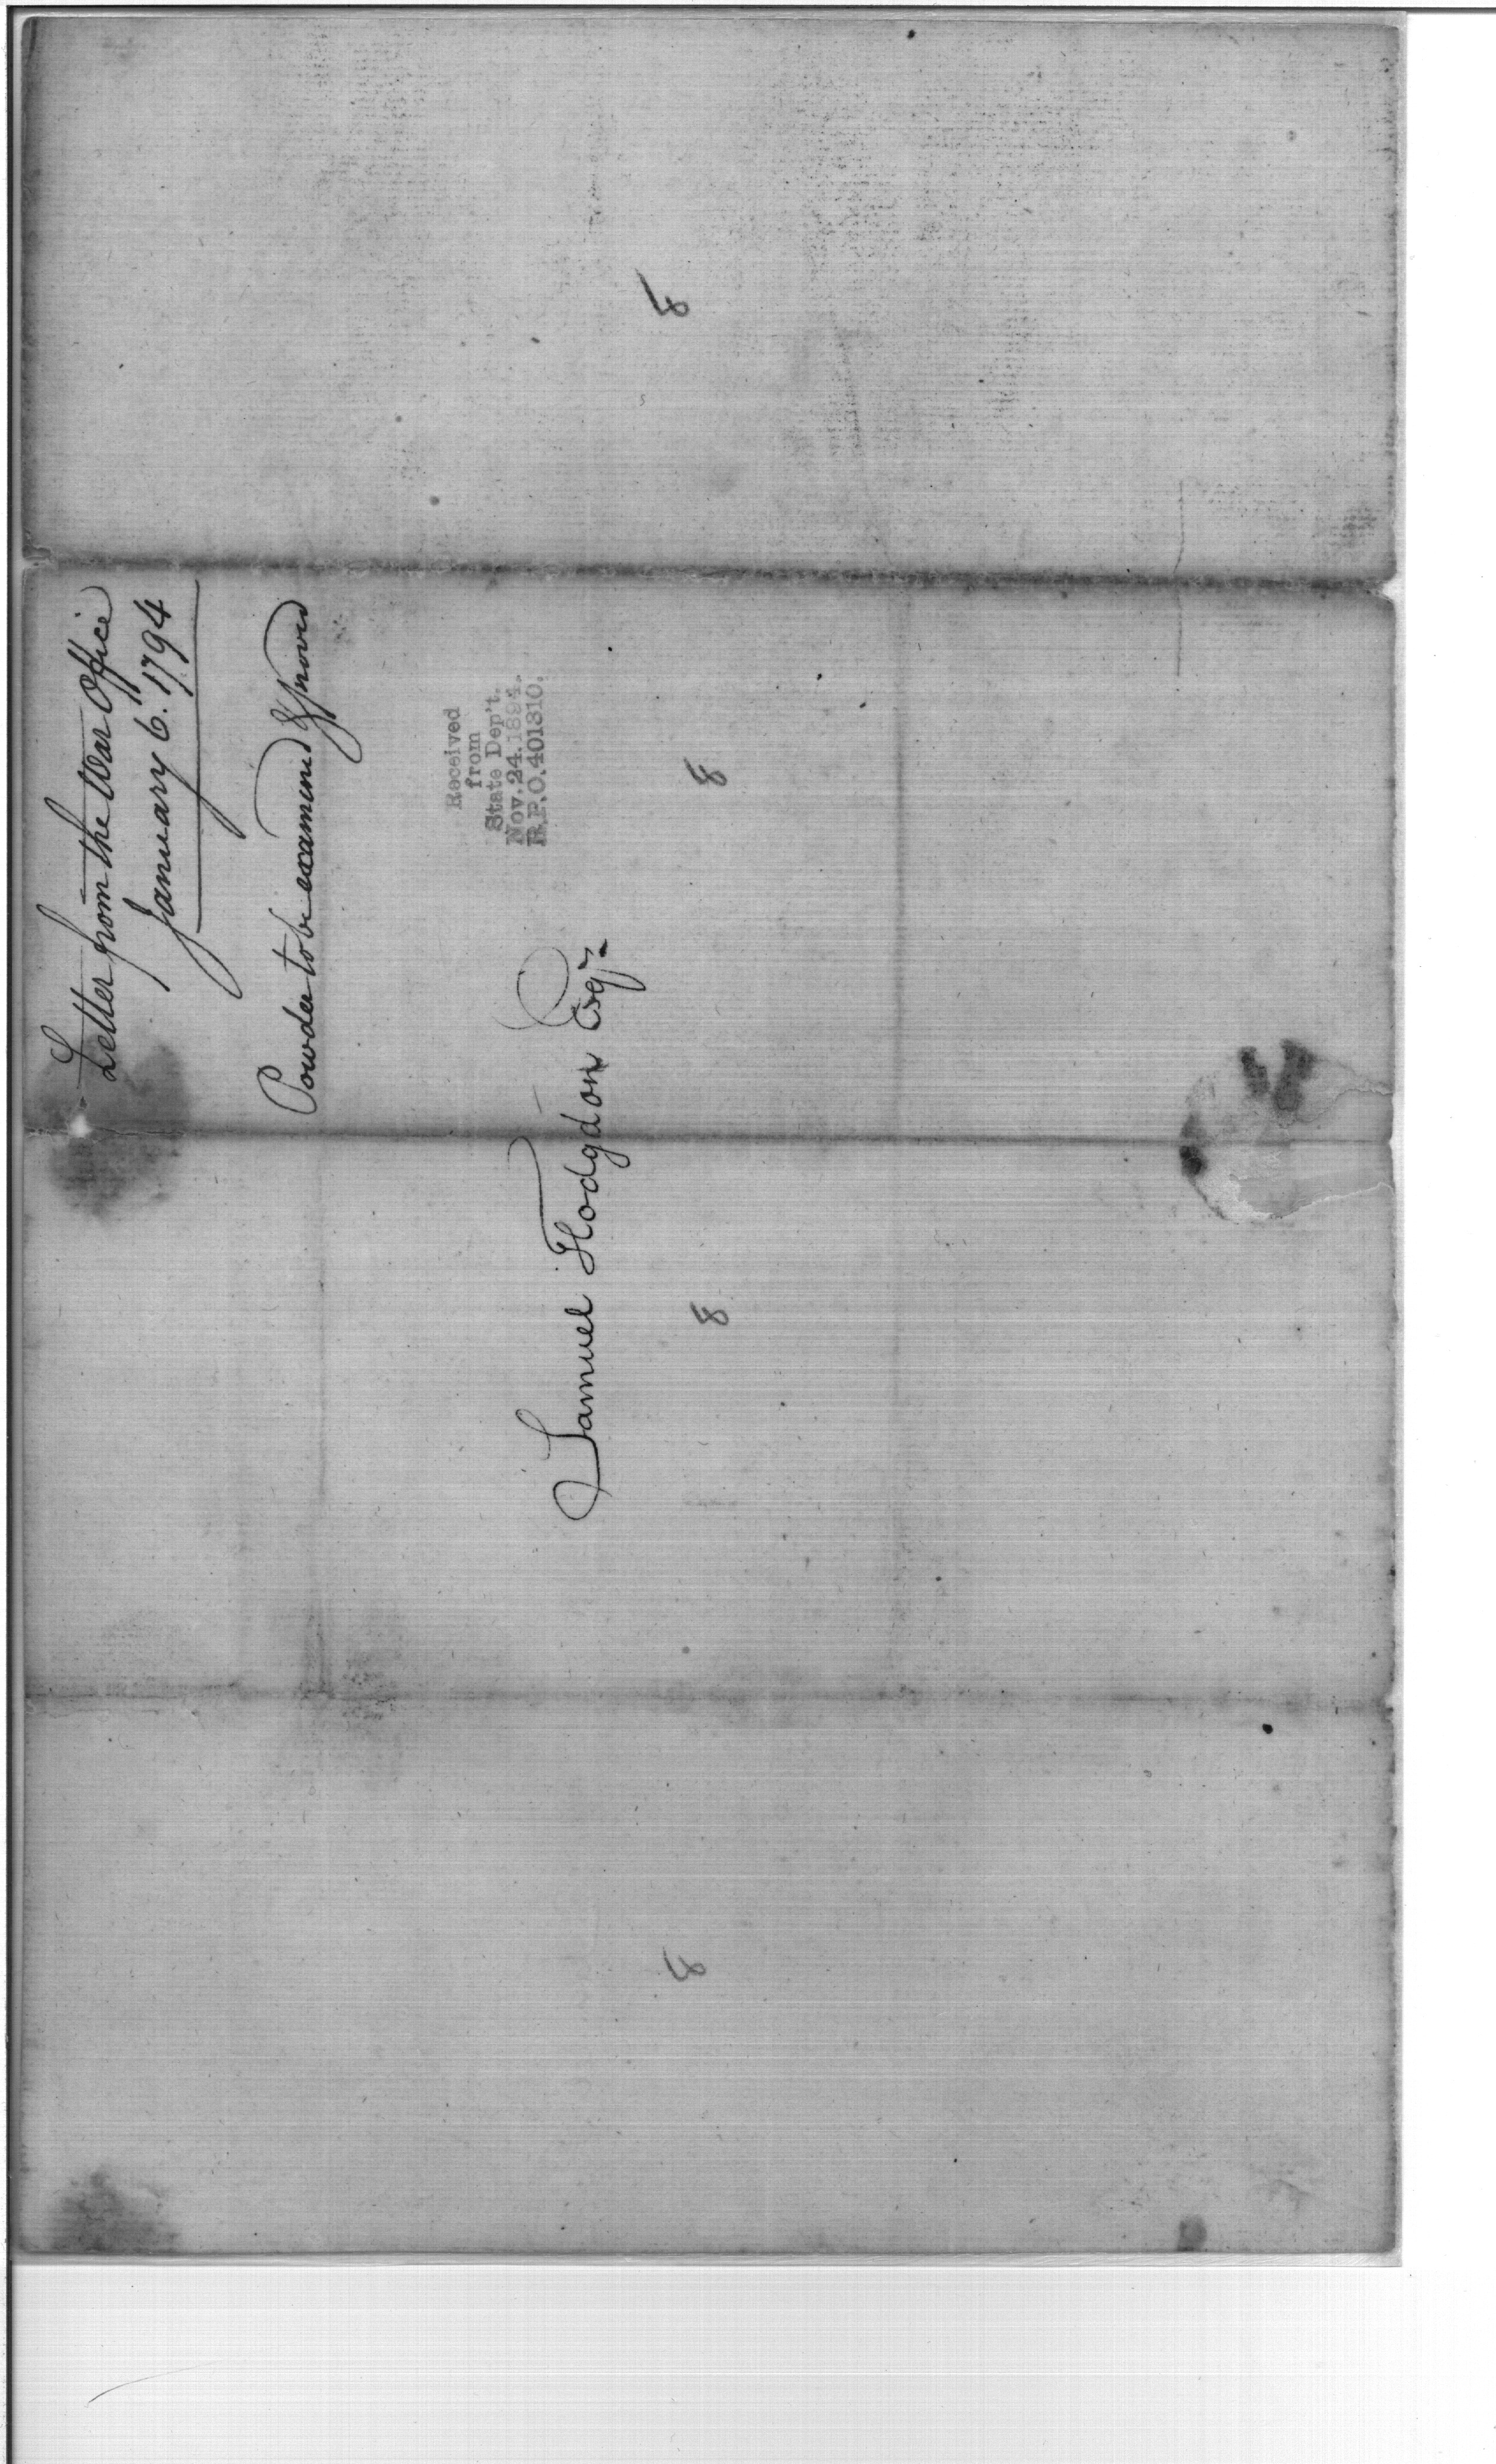 Letter from the War Office
January 6. 1794
Powder to be examined & proved
Received
from
State Dep't.
Nov. 24. 1894.
R.P.O. 401310.
Samuel Hodgdon Esqr.
8
8
8
8